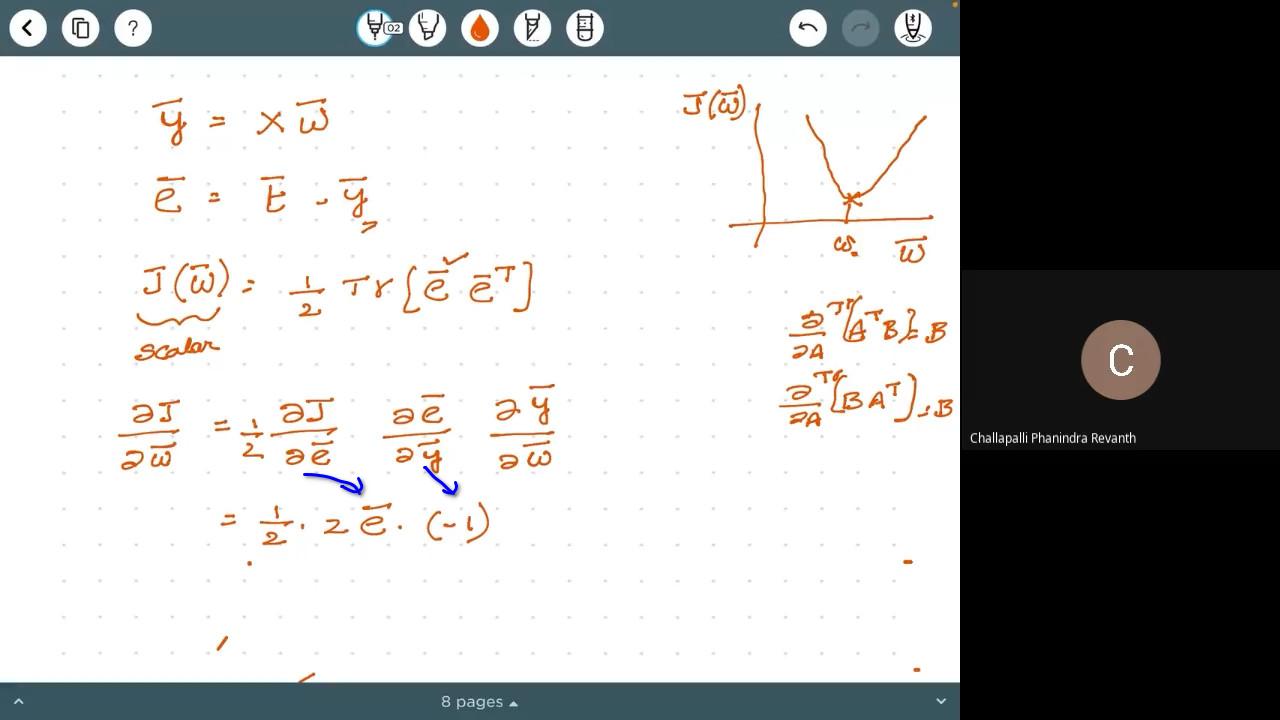 ? 02
y̅ = X w̅
e̅ = t̅ - y̅
J(w̅) = 1/2 Tr[e̅ e̅ᵀ]
scalar
∂J/∂w̅ = 1/2 ∂J/∂e̅ ∂e̅/∂y̅ ∂y̅/∂w̅
= 1/2 · 2 e̅ · (-1)
J(w̅)
w̅
∂/∂A Tr[AᵀB] = B
∂/∂A Tr[BAᵀ] = B
C
Challapalli Phanindra Revanth
8 pages